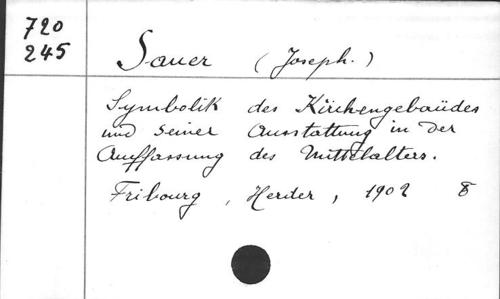 720
245
Sauer (Joseph.)
Symbolik des Kirchengebaüdes
und seiner Ausstattung in der
Auffassung des Mittelalters.
Fribourg, Herder, 1902 8